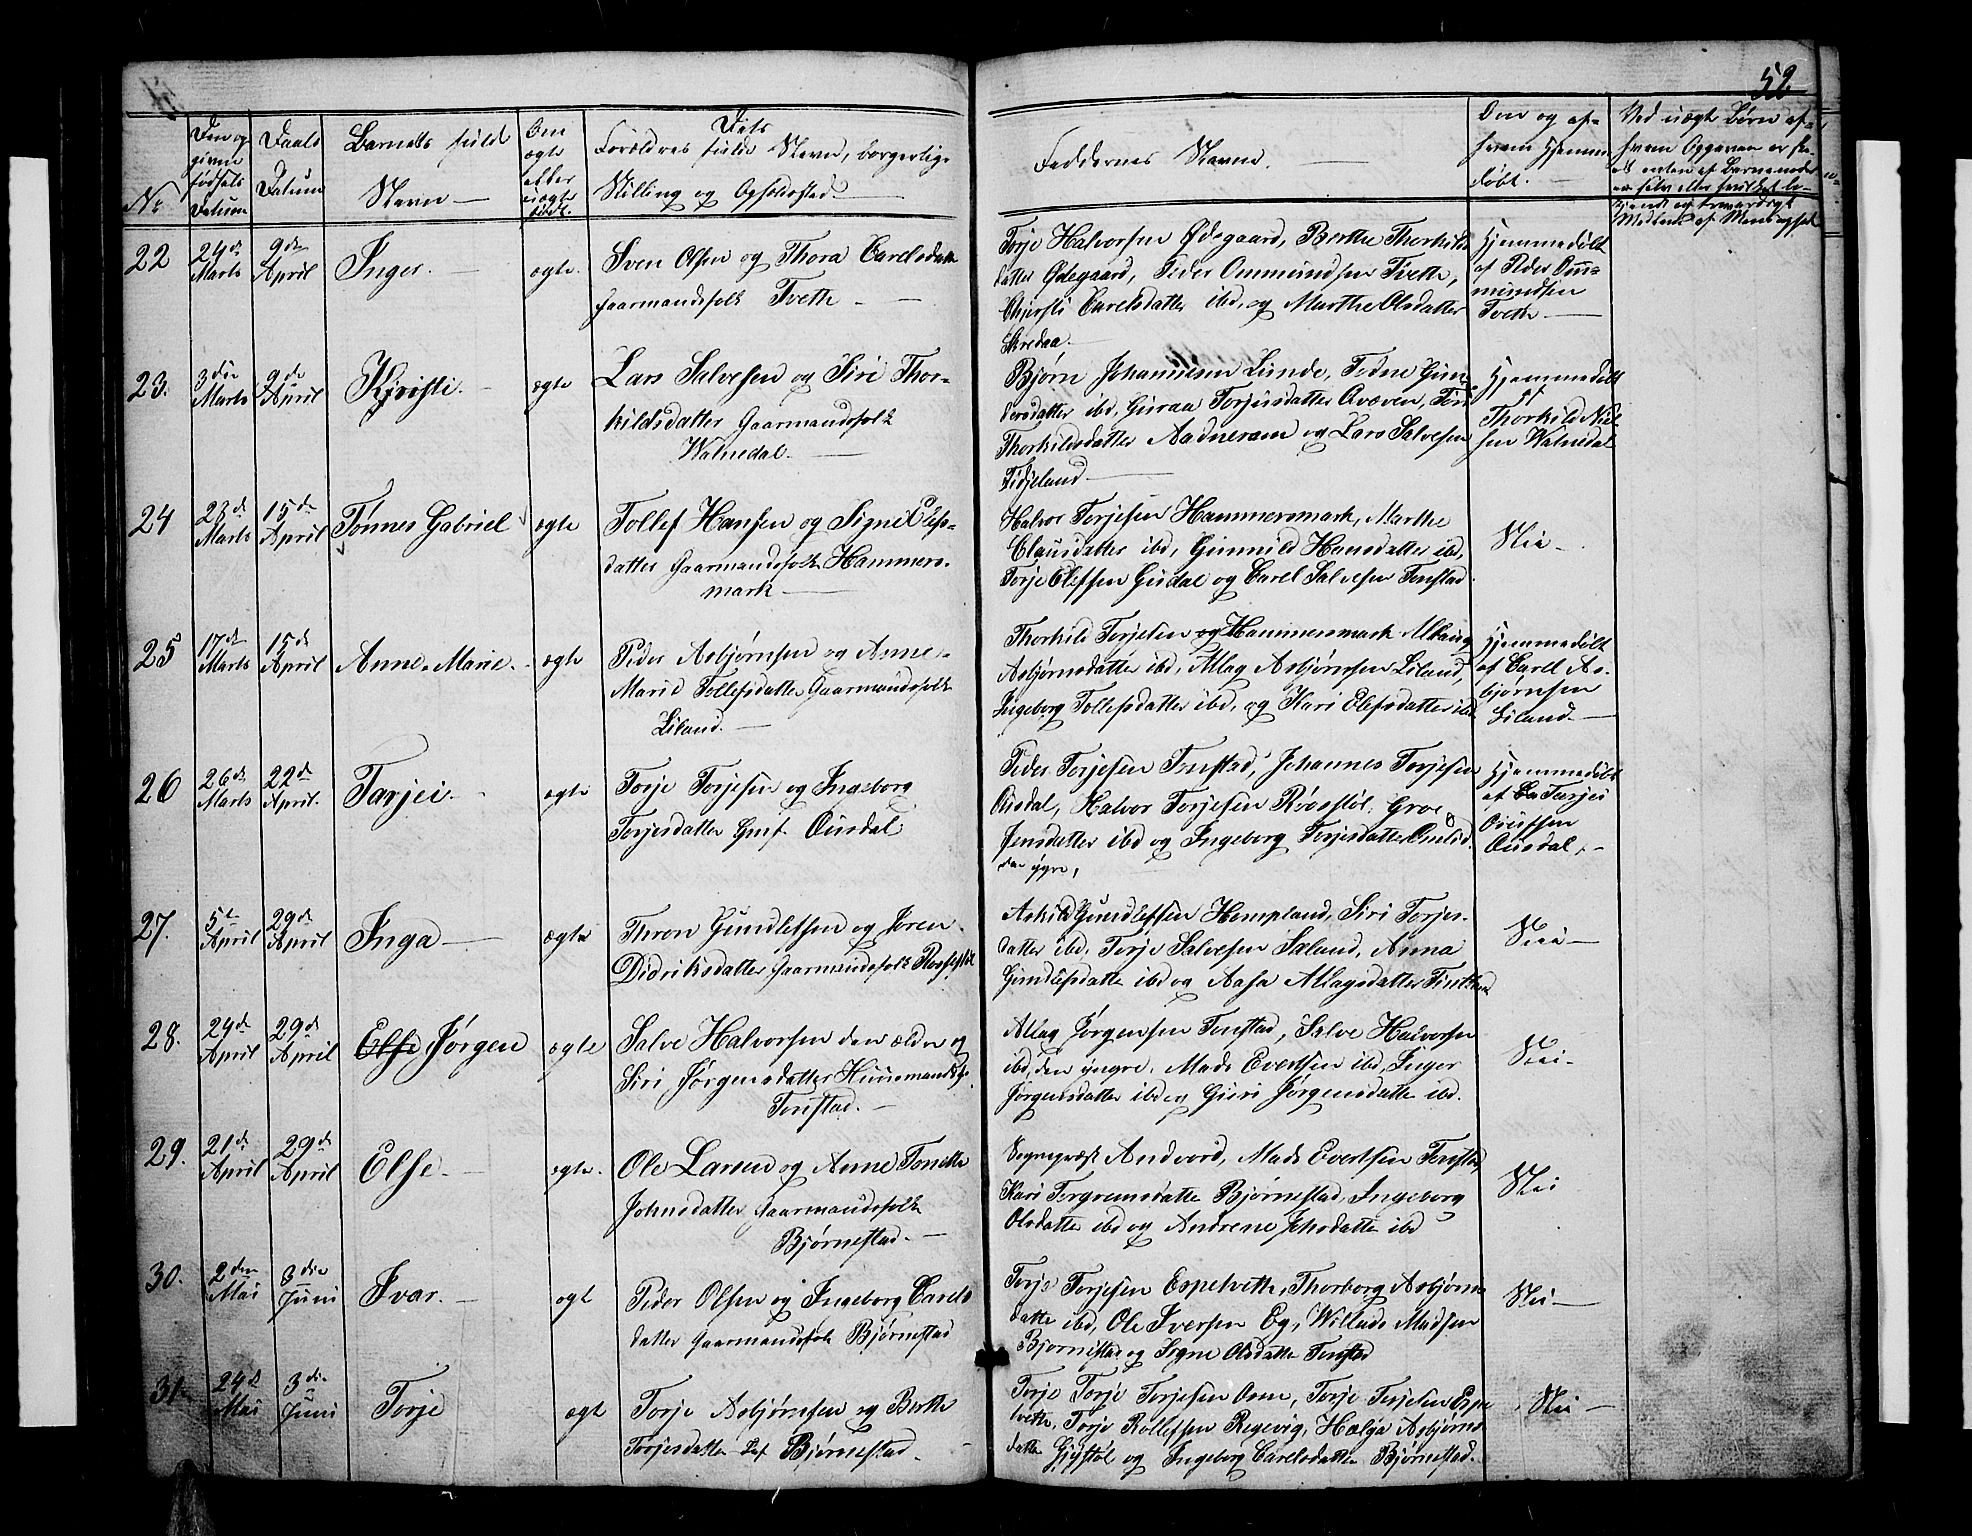 52
No
Den og
Daabs
Datum
Barnets fulde
Navn
Om
ægte
eller
uægte
født.
Dets
Forældres fulde Navn, borgerlige
Stilling og Opholdsted.
Faddernes Navne.
Om og af
hvem hjemme
døbt.
Ved uægte Børn af
22
24de Marts
9de April
Inger.
ægte.
Sven Olsen og Thora Carelsdatter
Gaarmandsfolk Tveth
Torje Halvorsen Ødegaard, Berthe Thorkilds
datter Ødegaard, Peder Ommundsen Tveth,
Carelsdatter ibd, og Marthe Olsdatter
Skredaa.
Hjemmedøbt
af Peder Om-
mundsen
Tveth
23.
3die Marts
9de April
Kjristi.
ægte
Lars Salvesen og Siri Thor-
kildsdatter Gaarmandsfolk
Walnedal.
Bjørn Johannesen Lunde,
datter ibd, Guraa Torjusdatter
Thorkildsdatter Aadneram og Lars Salvesen
Fidjeland
Hjemmedøbt
af
Thorkild Niel-
sen Walnedal
24
23de Marts
15de April
Tønnes Gabriel
ægte
Tollef Hansen og Signe Elefs-
datter Gaarmandsfolk Hammers-
mark
Halvor Torjesen Hammersmark, Marthe
Clausdatter ibd, Gunnild Hansdatter ibd,
Torje Elefsen Gusdal og Carel Salvesen Tonstad
Nei
25
17de Marts
15de April
Anne Marie.
ægte
Peder Asbjørnsen og Anne
Marie Tollefsdatter Gaarmandsfolk
Liland.
Thorkild Torjesen og Hammersmark
Asbjørnsdatter ibd, Atlag Asbjørnsen Liland,
Ingeborg Tollefsdatter ibd, og Kari Elefsdatter ibd
Hjemmedøbt
af Carel As-
bjørnsen
Liland.
26
26de Marts
22de April.
Tarjei.
ægte
Torje Torjesen og Ingeborg
Torjesdatter Gmf. Ousdal
Peder Torjesen Tonstad, Johannes Torjesen
Ousdal, Halvor Torjesen Røvsstøl. Groe
Jensdatter ibd og Ingeborg Torjesdatter
den yngre,
Hjemmedøbt
af Tarjei
Ousdal,
27.
5te April
29de April
Inga
ægte
Thron Gundlefsen og Joren
Didriksdatter Gaarmandsfolk
Askild Gundlefsen Hompland, Siri Torjes-
datter ibd, Torje Salvesen Saland, Anna
Gundlefsdatter ibd og Aasa Atlagsdatter
Nei
28.
24de April
29de April
Else Jørgen
ægte
Salve Halvorsen den ældre og
Siri Jørgensdatter Huusmandsf.
Tonstad.
Atlag Jørgensen Tonstad, Salve Halvorsen
ibd, den yngre. Mads Evertsen ibd, Inger
Jørgensdatter ibd og Guri Jørgensdatter ibd.
Nei
29.
21de April
29de April
Else.
ægte.
Ole Larsen og Anne Tonette
Johnsdatter Gaarmandsfolk
Bjørnestad.
Sognepræst Andvord, Mads Evertsen Tonstad,
Kari Torgrensdatter Bjørnestad, Ingeborg
Olsdatter ibd og Andrene Johsdatter ibd
Nei
30.
2den Mai
3die Juni
Ivar.
ægt
Peder Olsen og Ingeborg Carels
datter Gaarmandsfolk Bjørnestad
Torje Torjesen Espetveth, Thorborg Asbjørns
datter ibd, Ole Iversen Eg, Willads Madsen
Bjørnestad og Signe Olsdatter Tonstad
Nei
31
24de Mai
3die Juni
Torje
ægt
Torje Asbjørnsen og Berthe
Torjesdatter Bjørnestad.
Torje Torje Torjesen Osen, Torje Torjesen Espe
tveth, Torje Rollefsen Regevig, Helga Asbjørns
datter og Ingeborg Carelsdatter Bjørnestad.
Nei